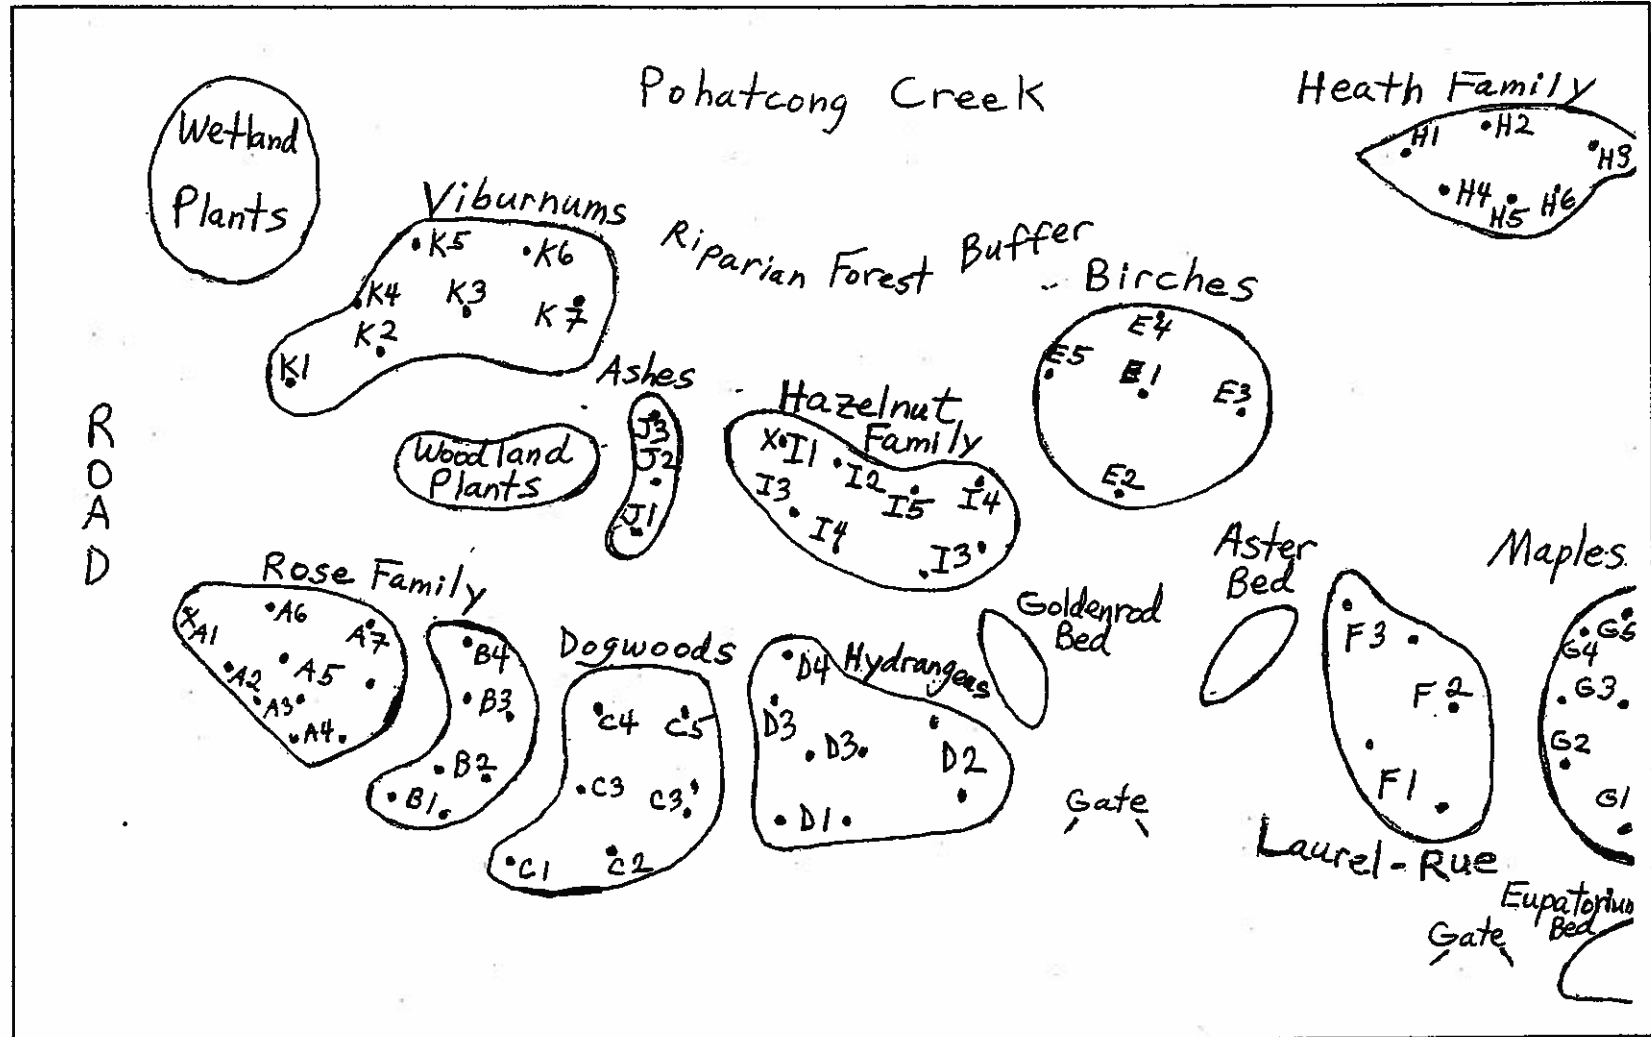 Pohatcong Creek
Heath Family
H1
H2
H3
H4
H5
H6
Wetland
Plants
Viburnums
K5
K6
K4
K3
K7
K2
K1
Riparian Forest Buffer
Birches
E4
E5
E1
E3
E2
Ashes
J3
J2
J1
Woodland
Plants
Hazelnut
Family
X I1
I2
I3
I5
I4
I4
I3
ROAD
Rose Family
X
A1
A6
A7
A2
A5
A3
A4
B4
B3
B2
B1
Dogwoods
C4
C5
C3
C3
C1
C2
Hydrangeas
D4
D3
D3
D2
D1
Goldenrod
Bed
Aster
Bed
Gate
F3
F2
F1
Laurel-Rue
Maples
G5
G4
G3
G2
G1
Eupatorium
Bed
Gate